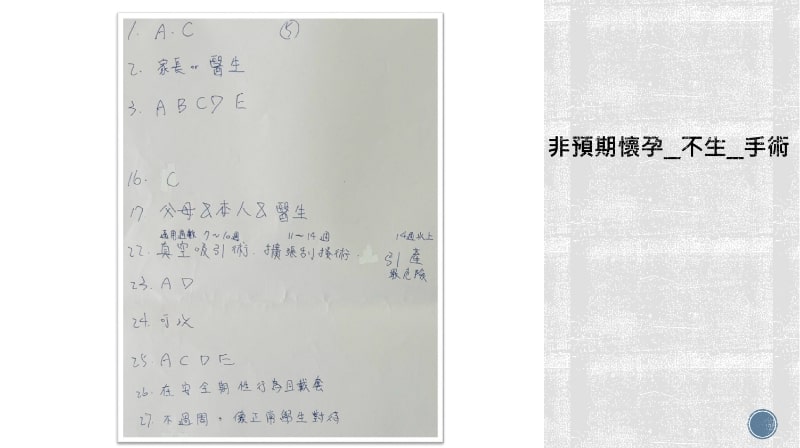 1. A. C ⑤
2. 家長 or 醫生
3. A B C D E
16. C
17 父母&本人&醫生
適用週數 7～10週 11～14 週 14週以上
22. 真空吸引術. 擴張刮搔術. 引產
最危險
23. A D
24. 可以
25. A C D E
26. 在安全期性行為且戴套
27. 不過問。像正常學生對待
非預期懷孕_不生_手術